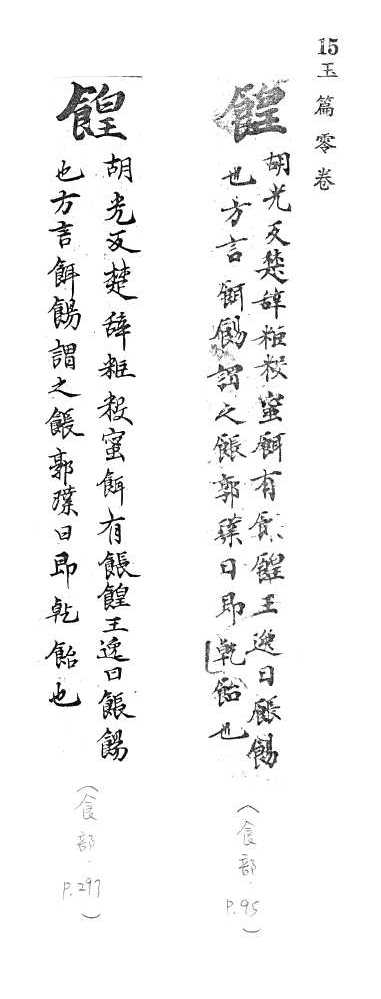 15玉篇零卷
餭
胡光反楚辞粔籹蜜餌有餦餭王逸曰餦餳
也方言餌餳謂之餦郭璞曰即乾飴也
(食部.P.95)
餭
胡光反楚辞粔籹蜜餌有餦餭王逸曰餦餳
也方言餌餳謂之餦郭璞曰即乾飴也
(食部.P.297)